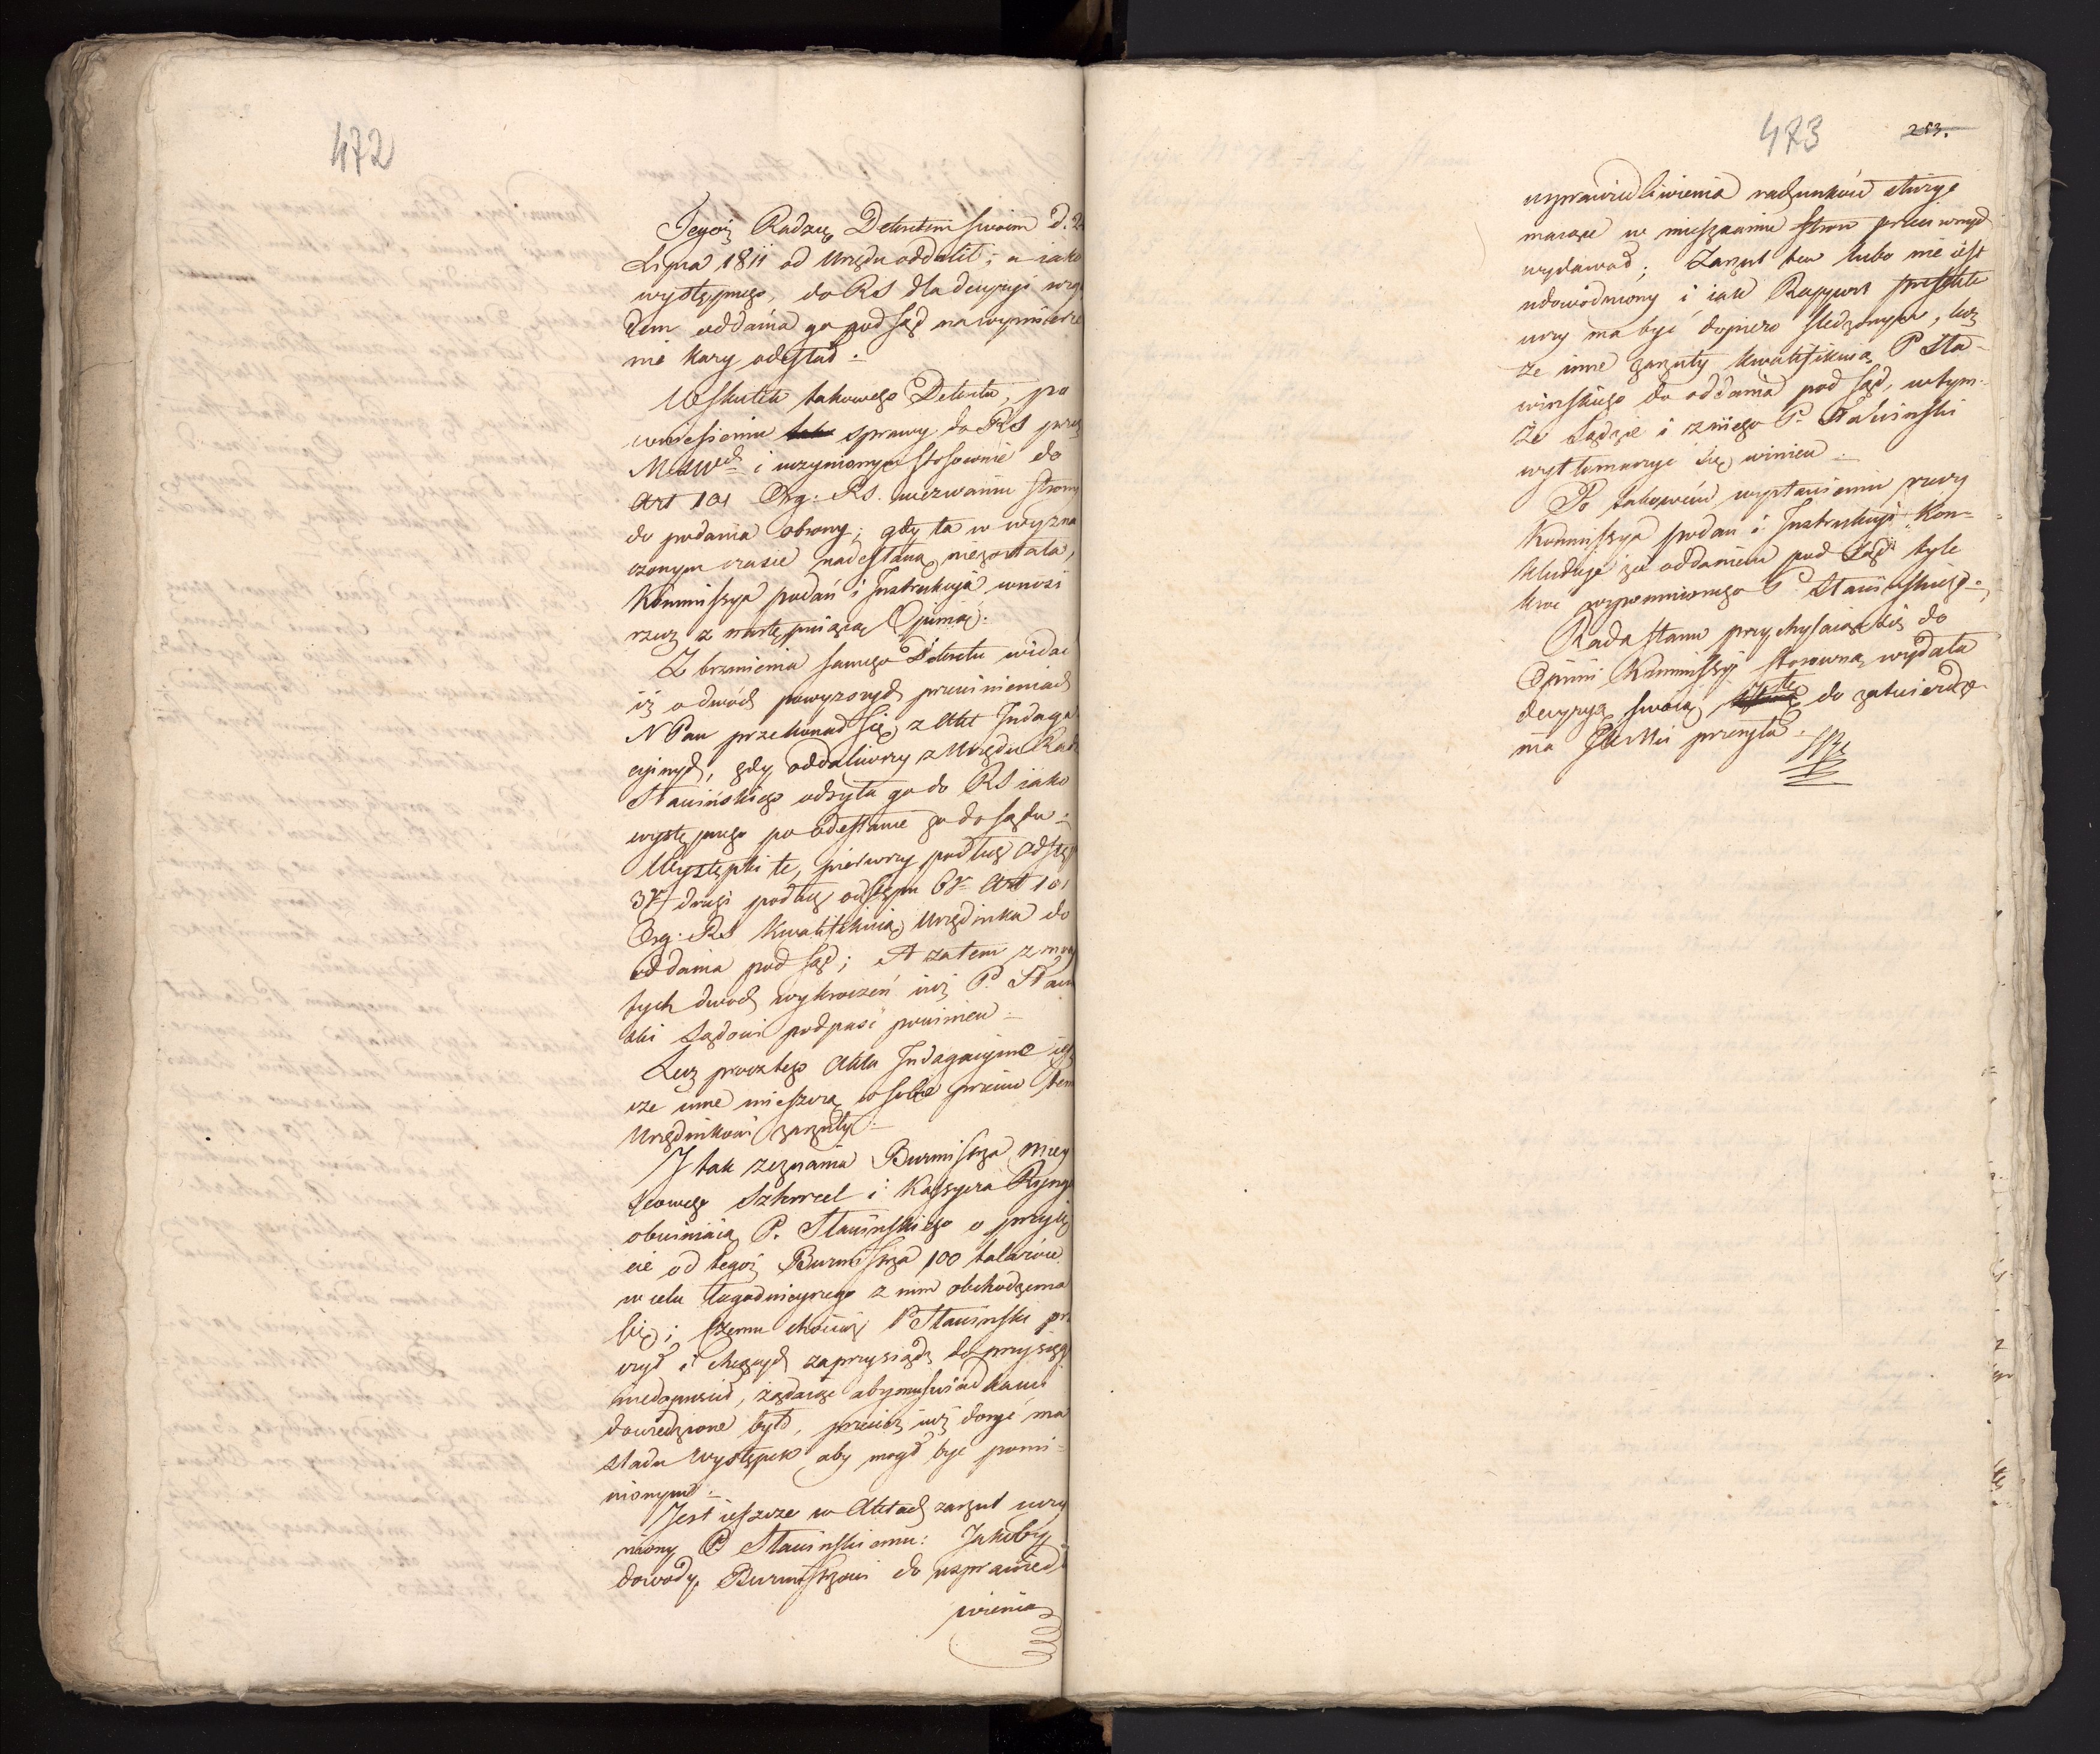 472
Tegoż Radzcę Dekretem swoim d. 2
Lipca 1811 od Urzędu oddalił; a iako
występnego, do RS dla decyzyi wzglę
dem oddania go pod sąd na wymierze
nie kary odesłał.
Wskutek takowego Dekretu, po
wniesieniu sprawy do RS przez
MSWch i uczynionym stosownie do
Art 101 Org: RS. wezwaniu strony
do podania obrony; gdy ta w wyzna
czonym czasie nadesłaną niezostała,
Kommissya podań i Instrukcyi wnosi
rzecz z następuiącą Opinią.
Z brzmienia samego Dekretu widać
iż o dwóch powyższych przewinieniach
N Pan przekonał się z Akt Indaga
cyinych, gdy oddaliwszy z Urzędu Radz
Stawińskiego odsyła go do RS iako
występnego po odesłanie go do sądu.
Występki te, pierwszy podług odstęp
3go drugi podług odstępu 6go Art 101
Org: RS kwalifikuią Urzędnika do
oddania pod sąd; A zatem z mocy
tych dwóch wykroczeń iuż P. Stawiń
ski Sądowi podpaść powinien.
Lecz procz tego Akta Indagacyine iesz
cze inne mieszczą w sobie przeciw tem
Urzędnikowi zarzuty.
I tak zeznania Burmistrza miey
scowego Szkorcel i Kassyera Ryng
obwiniaią P. Stawińskiego o przyię
cie od tegoż Burmistrza 100 talarów
w celu łagodnieyszego z nim obchodzenia
się; czemu chociaż P Stawiński prze
czył i chcących zaprzysiądz do przysięgi
niedopuścił, żądaiąc aby mu świadkami
dowiedzione było, przecież iuż dosyć ma
sladu występek aby mógł być pomi-
nionym.
Jest ieszcze w Aktach zarzut uczy
niony P. Stawińskiemu: Jakoby
dowody, Burmistrzowi do usprawiedli
wienia
473
253.
usprawiedliwienia rachunków służyć
maiące w mieszkaniu stron przeciwnych
wydawał; Zarzut ten lubo nie iest
udowodniony i iak Rapport
wszy ma być dopiero śledzonym, lecz
że inne zarzuty kwalifikuią P Sta-
wińskiego do oddania pod sąd, w tym-
że Sądzie i z niego P. Stawiński
wytłomaczyć się winien.
Po takowém wystawieniu rzeczy
Kommissya podań i Instrukcyi Kon-
kluduje za oddaniem pod Sąd tyle
kroć wspomnionego P. Stawińskiego.
Rada Stanu przychylaiąc się do
Opinii Kommissyi stosowną wydała
decyzyą swoią, tę do zatwierdze-
nia JKMci przesyła.